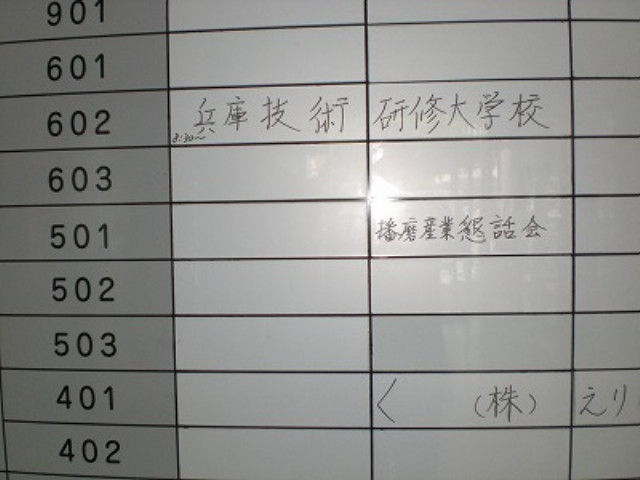 901
601
602 兵庫技術 研修大学校
8:30〜
603
501 播磨産業懇話会
502
503
401 く (株) えり
402